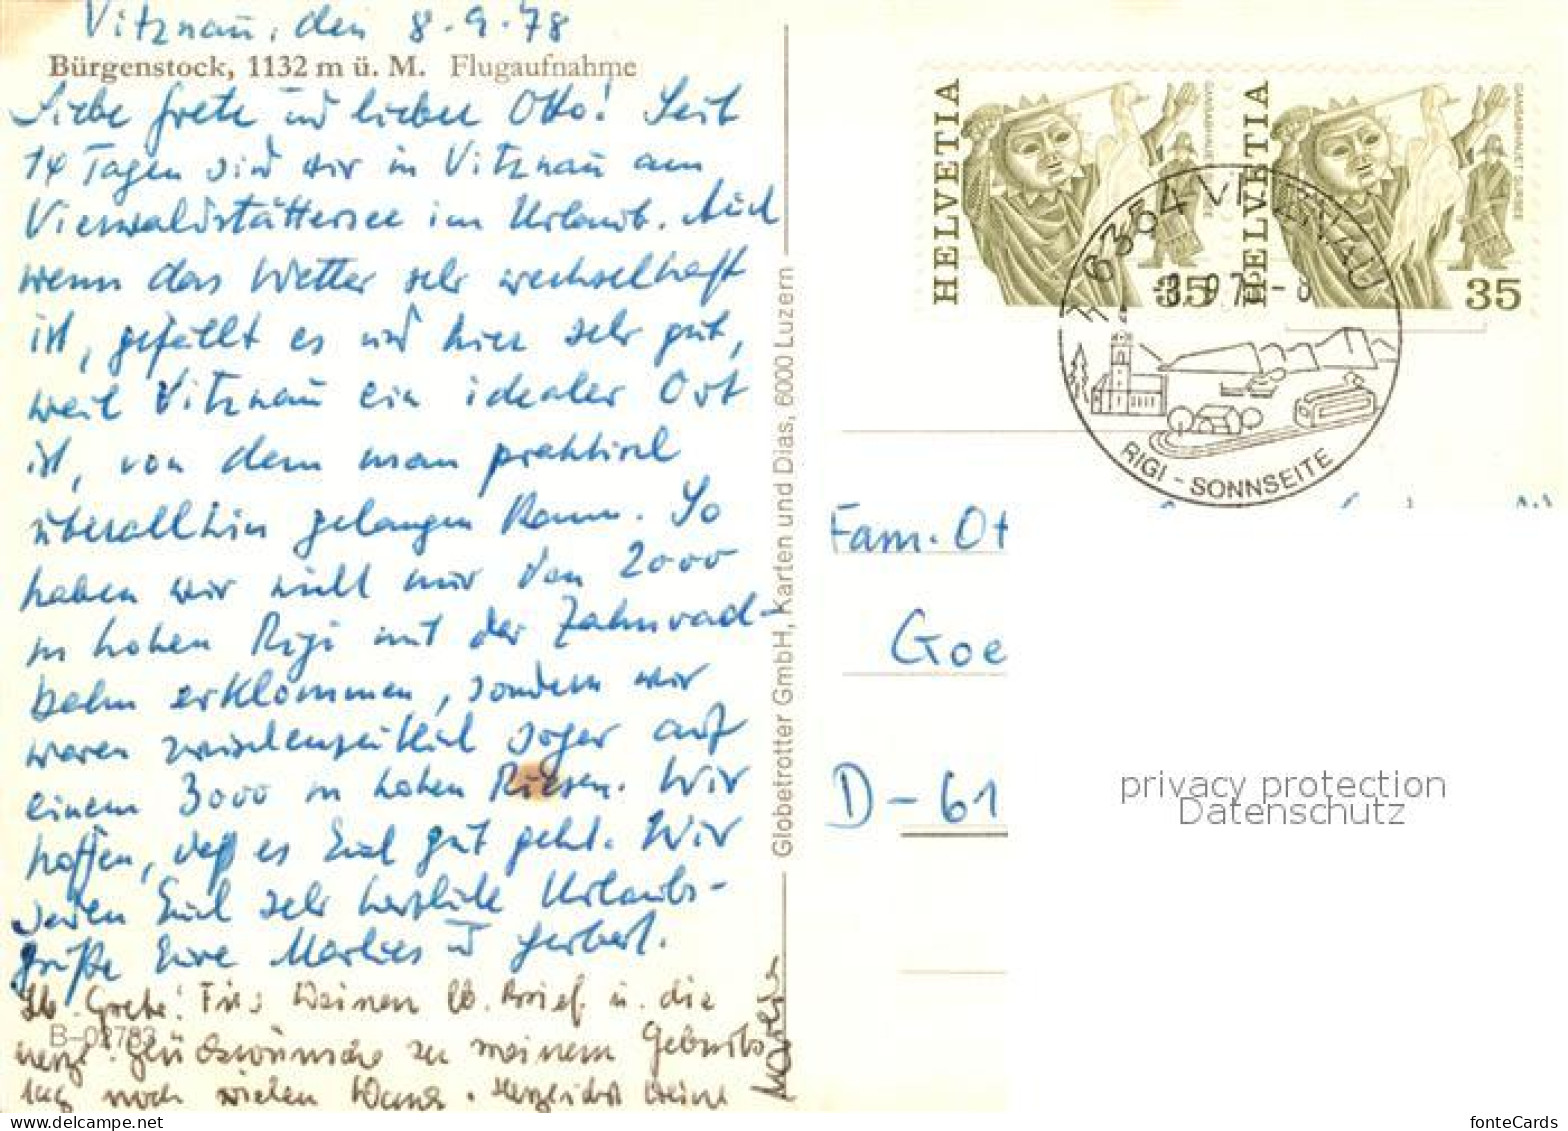 Vitznau, den 8.9.78
Bürgenstock, 1132 m ü. M. Flugaufnahme
Liebe Grete und lieber Otto! Seit
14 Tagen sind wir in Vitznau am
Vierwaldstättersee im Urlaub. Auch
wenn das Wetter sehr wechselhaft
ist, gefällt es uns hier sehr gut,
weil Vitznau ein idealer Ort
ist, von dem man praktisch
überallhin gelangen kann. So
haben wir nicht nur den 2000
m hohen Rigi mit der Zahnrad-
bahn erklommen, sondern wir
waren zwischenzeitlich sogar auf
einem 3000 m hohen Riesen. Wir
hoffen, daß es Euch gut geht. Wir
senden Euch sehr herzliche Urlaubs-
grüße Eure Marlies u Herbert.
Lb. Grete! Für Deinen lb. Brief u. die
B-02783
herzl. Glückwünsche zu meinem Geburts
tag noch vielen Dank. Herzlichst Deine
Marlies
Globetrotter GmbH, Karten und Dias, 6000 Luzern
HELVETIA
GANSABHAUET SURSEE
35
HELVETIA
GANSABHAUET SURSEE
35
6354 VITZNAU
-8.9.7 -8
RIGI - SONNSEITE
Fam. Ot
Goe
D-61
privacy protection
Datenschutz
fonteCards